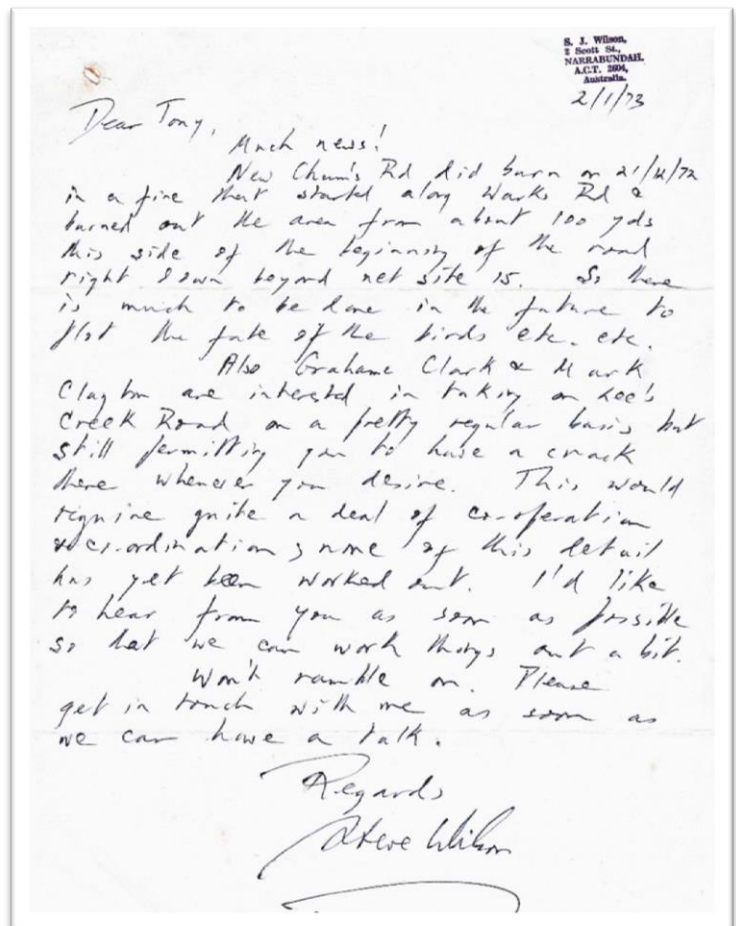 S. J. Wilson,
2 Scott St.,
NARRABUNDAH,
A.C.T. 2604,
Australia.
2/1/73
Dear Tony,
Much news!
New Chum's Rd did burn on 21/12/72
in a fire that started along Warks Rd &
burned out the area from about 100 yds
this side of the beginning of the road
right down beyond net site 15. So there
is much to be done in the future to
plot the fate of the birds etc. etc.
Also Grahame Clark & Mark
Clayton are interested in taking on Lee's
Creek Road on a pretty regular basis but
still permitting you to have a crack
there whenever you desire. This would
require quite a deal of co-operation
& co-ordination; none of this detail
has yet been worked out. I'd like
to hear from you as soon as possible
so that we can work things out a bit.
Won't ramble on. Please
get in touch with me as soon as
we can have a talk.
Regards
Steve Wilson